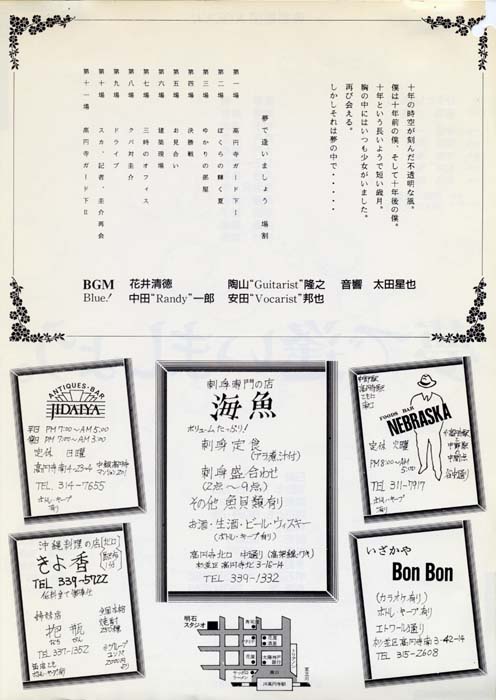 十年の時空が刻んだ不透明な風。
僕は十年前の僕、そして十年後の僕。
十年という長いようで短い歳月。
胸の中にはいつも少女がいました。
再び会える。
しかしそれは夢の中で・・・・・
夢で逢いましょう 場割
第一場 高円寺ガード下Ⅰ
第二場 ぼくらの輝く夏
第三場 ゆかりの部屋
第四場 決勝戦
第五場 お見合い
第六場 建築現場
第七場 三時のオフィス
第八場 クバ対圭介
第九場 ドライブ
第十場 スカ、記者、圭介再会
第十一場 高円寺ガード下Ⅱ
BGM 花井清徳 陶山"Guitarist"隆之 音響 太田星也
Blue! 中田"Randy"一郎 安田"Vocarist"邦也
ANTIQUES・BAR
JIDAIYA
平日 PM7:00~AM5:00
PM7:00~AM3:00
定休 日曜
高円寺南4-23-4
TEL. 314-7655
ボトル・キープ
有り
刺身専門の店
海魚
ボリュームたーっぷり!
刺身定食
(アラ煮汁付)
刺身盛合わせ
(2点~9点)
その他 魚貝類有り
お酒・生酒・ビール・ウィスキー
(ボトル・キープ有り)
高円寺北口 中通り
杉並区高円寺北3-16-14
TEL 339-1332
FOODS BAR
NEBRASKA
定休 火曜
PM8:00~AM
5:00
TEL. 311-7917
ボトル・キープ
有り
沖縄料理の店
きよ香
TEL 339-5722
姉妹店
抱瓶
TEL 337-1352
いざかや
Bon Bon
(カラオケ有り)
ボトル・キープ有り
エトワール通り
杉並区高円寺南3-42-14
TEL 315-2608
明石
スタジオ
JR高円寺駅